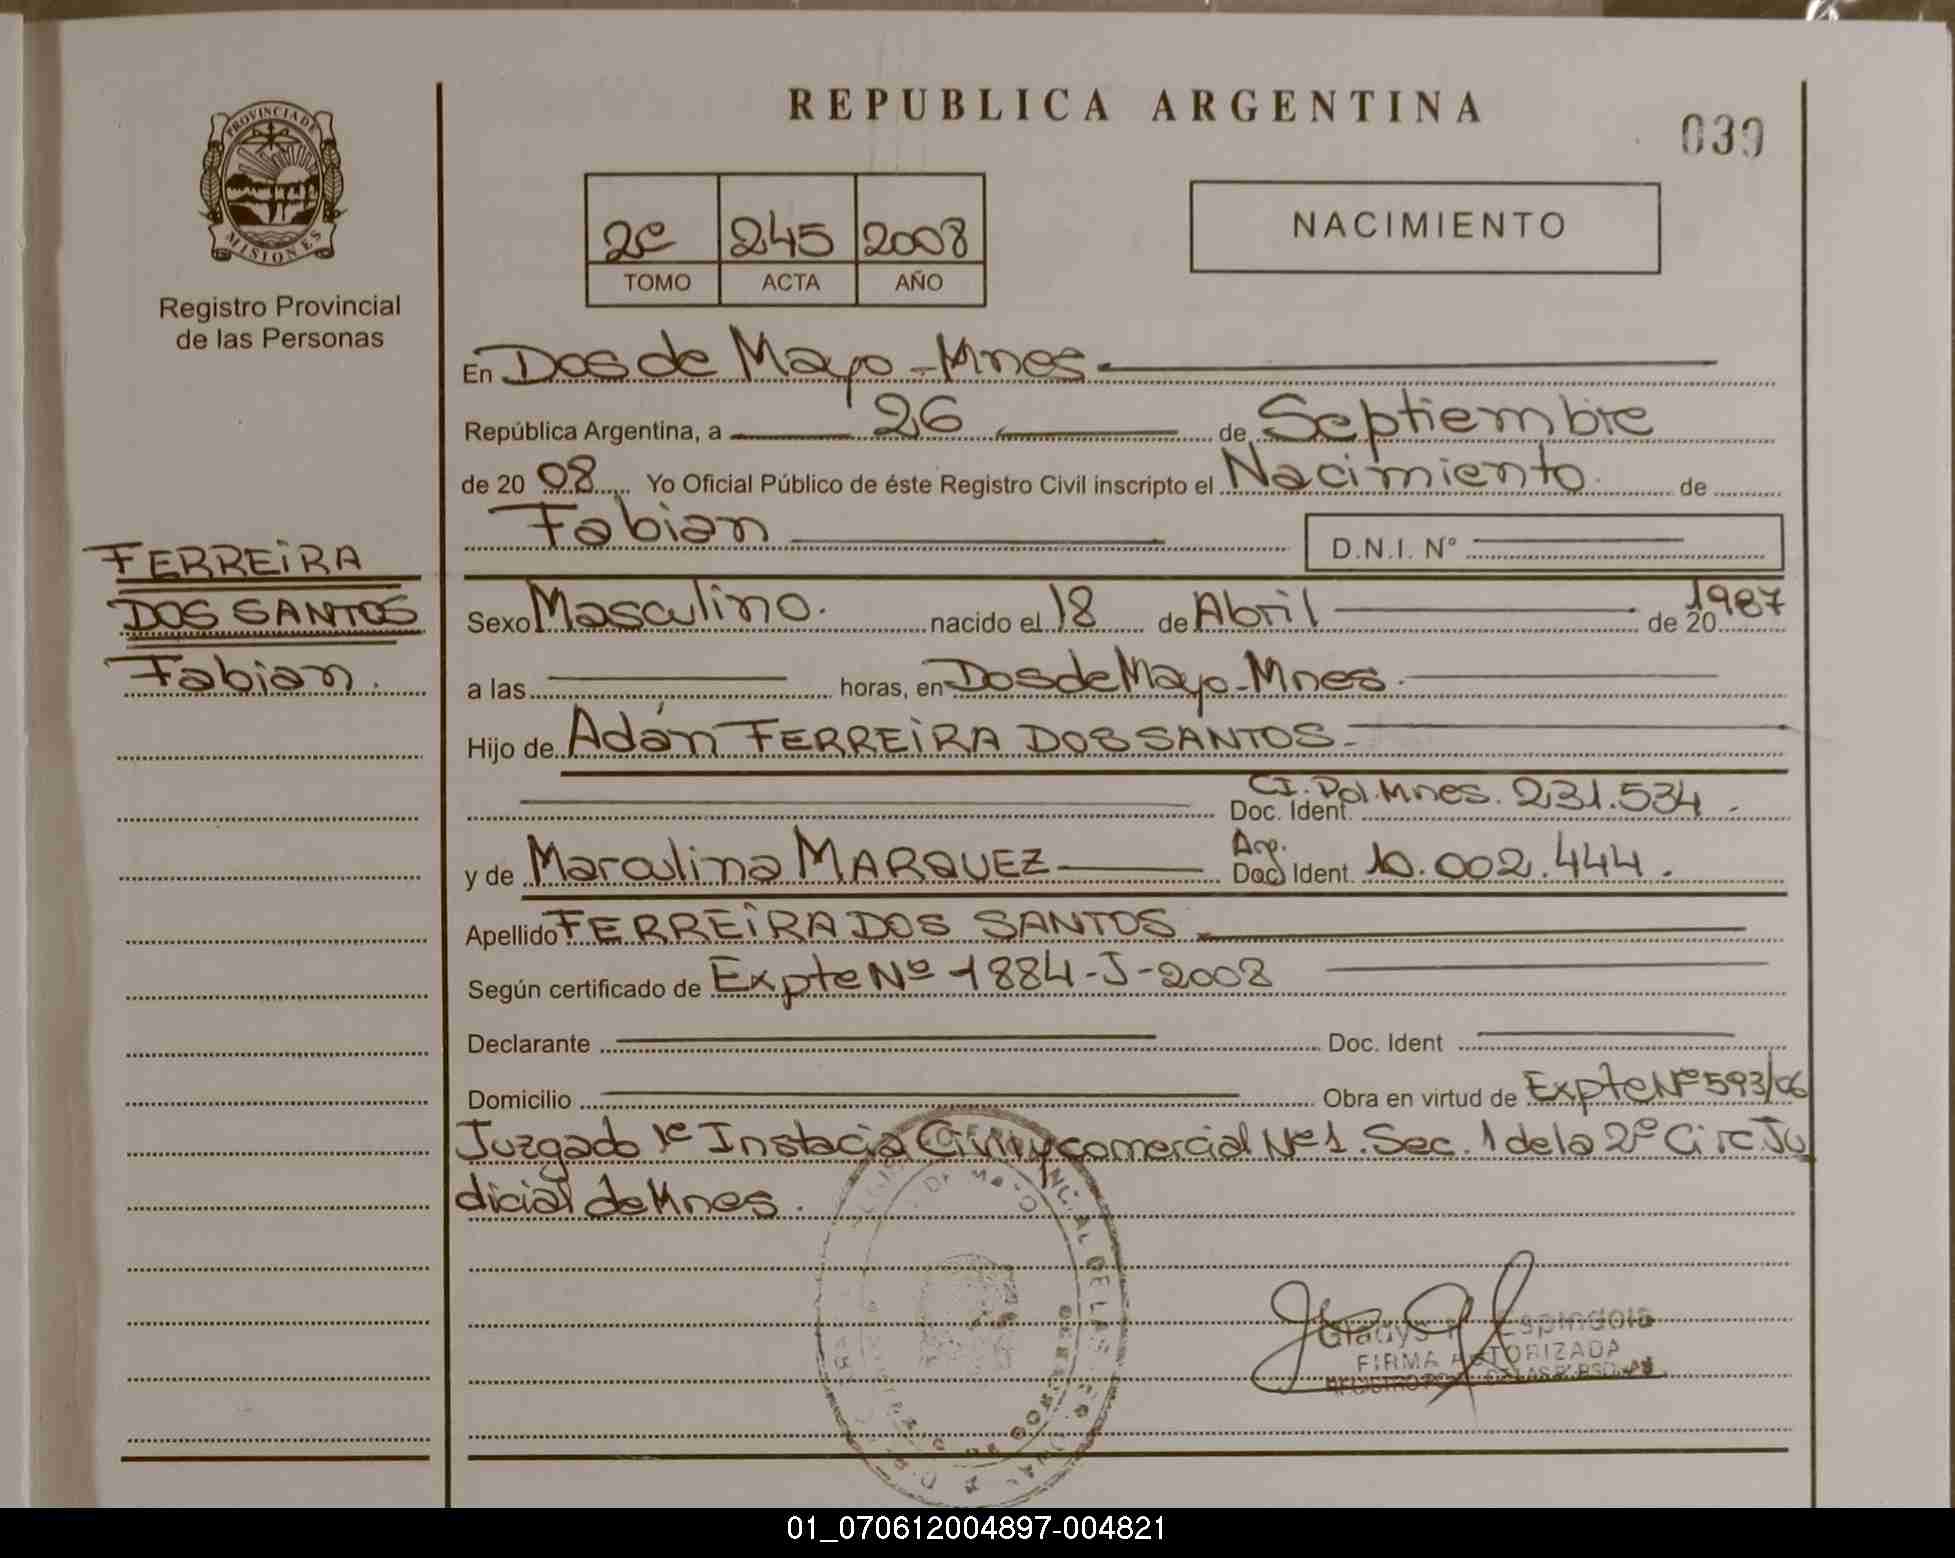 REPUBLICA ARGENTINA
039
PROVINCIA DE
MISIONES
Registro Provincial
de las Personas
2º 245 2008
TOMO ACTA AÑO
NACIMIENTO
En Dos de Mayo - Mnes
República Argentina, a 26 de Septiembre
de 20 08 Yo Oficial Público de éste Registro Civil inscripto el Nacimiento de
Fabian D.N.I. Nº
FERREIRA
DOS SANTOS
Fabian.
Sexo Masculino. nacido el 18 de Abril de 20 1987
a las horas, en Dos de Mayo - Mnes.
Hijo de Adán FERREIRA DOS SANTOS.
CI. Pol. Mnes. 231.534
Doc. Ident.
y de Marculina MARQUEZ Arg. Doc. Ident. 10.002.444.
Apellido FERREIRA DOS SANTOS
Según certificado de Expte Nº 1884-J-2008
Declarante Doc. Ident
Domicilio Obra en virtud de Expte Nº 593/06
Juzgado 1º Instacia Civil y comercial Nº 1. Sec. 1 de la 2º Circ Ju
dicial de Mnes.
DE MAYO
Gladys Espindola
FIRMA AUTORIZADA
01_070612004897-004821